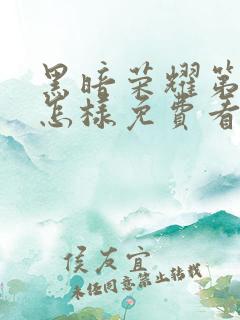 黑暗荣耀第
怎样免费看
侯友宜
未经同意禁止转载